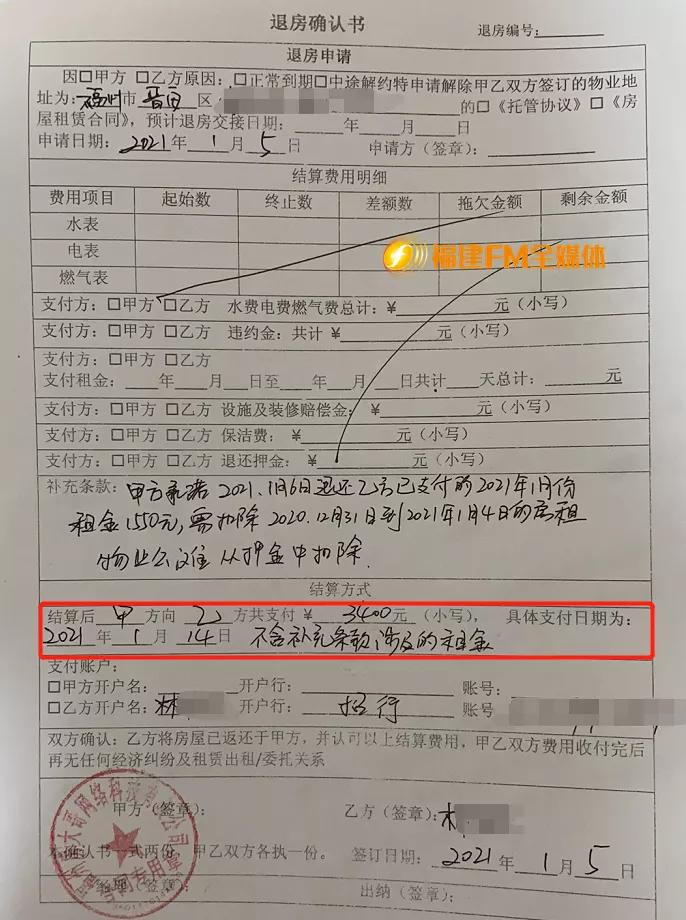 退房确认书
退房编号:
退房申请
因□甲方 □乙方原因:□正常到期□中途解约特申请解除甲乙双方签订的物业地
址为: 福州 市 晋安 区 的□《托管协议》□《房
屋租赁合同》, 预计退房交接日期: 年 月 日
申请日期: 2021 年 1 月 5 日 申请方(签章):
结算费用明细
费用项目 起始数 终止数 差额数 拖欠金额 剩余金额
水表
电表
福建FM全媒体
燃气表
支付方: □甲方 □乙方 水费电费燃气费总计: ¥ 元(小写)
支付方: □甲方 □乙方 违约金: 共计 ¥ 元(小写)
支付方: □甲方 □乙方
支付租金: 年 月 日至 年 月 日共计 天总计: 元
支付方: □甲方 □乙方 设施及装修赔偿金: ¥ 元(小写)
支付方: □甲方 □乙方 保洁费: ¥ 元(小写)
支付方: □甲方 □乙方 退还押金: ¥ 元(小写)
补充条款: 甲方承诺 2021.1月6日退还乙方已支付的2021年1月份
租金1550元, 需扣除 2020.12月31日到2021年1月4日的房租
物业公摊从押金中扣除.
结算方式
结算后 甲 方向 乙 方共支付 ¥ 3400 元(小写), 具体支付日期为:
2021 年 1 月 14 日 不含补充条款涉及的租金
支付账户:
□甲方开户名: 开户行: 账号:
□乙方开户名: 林 开户行: 招行 账号
双方确认: 乙方将房屋已返还于甲方, 并认可以上结算费用, 甲乙双方费用收付完后
再无任何经济纠纷及租赁出租/委托关系
甲方(签章): 乙方(签章): 林
本确认书一式两份, 甲乙双方各执一份。 签订日期: 2021 年 1 月 5 日
(签章): 出纳(签章):
大哥网络科技有限公司
合同专用章